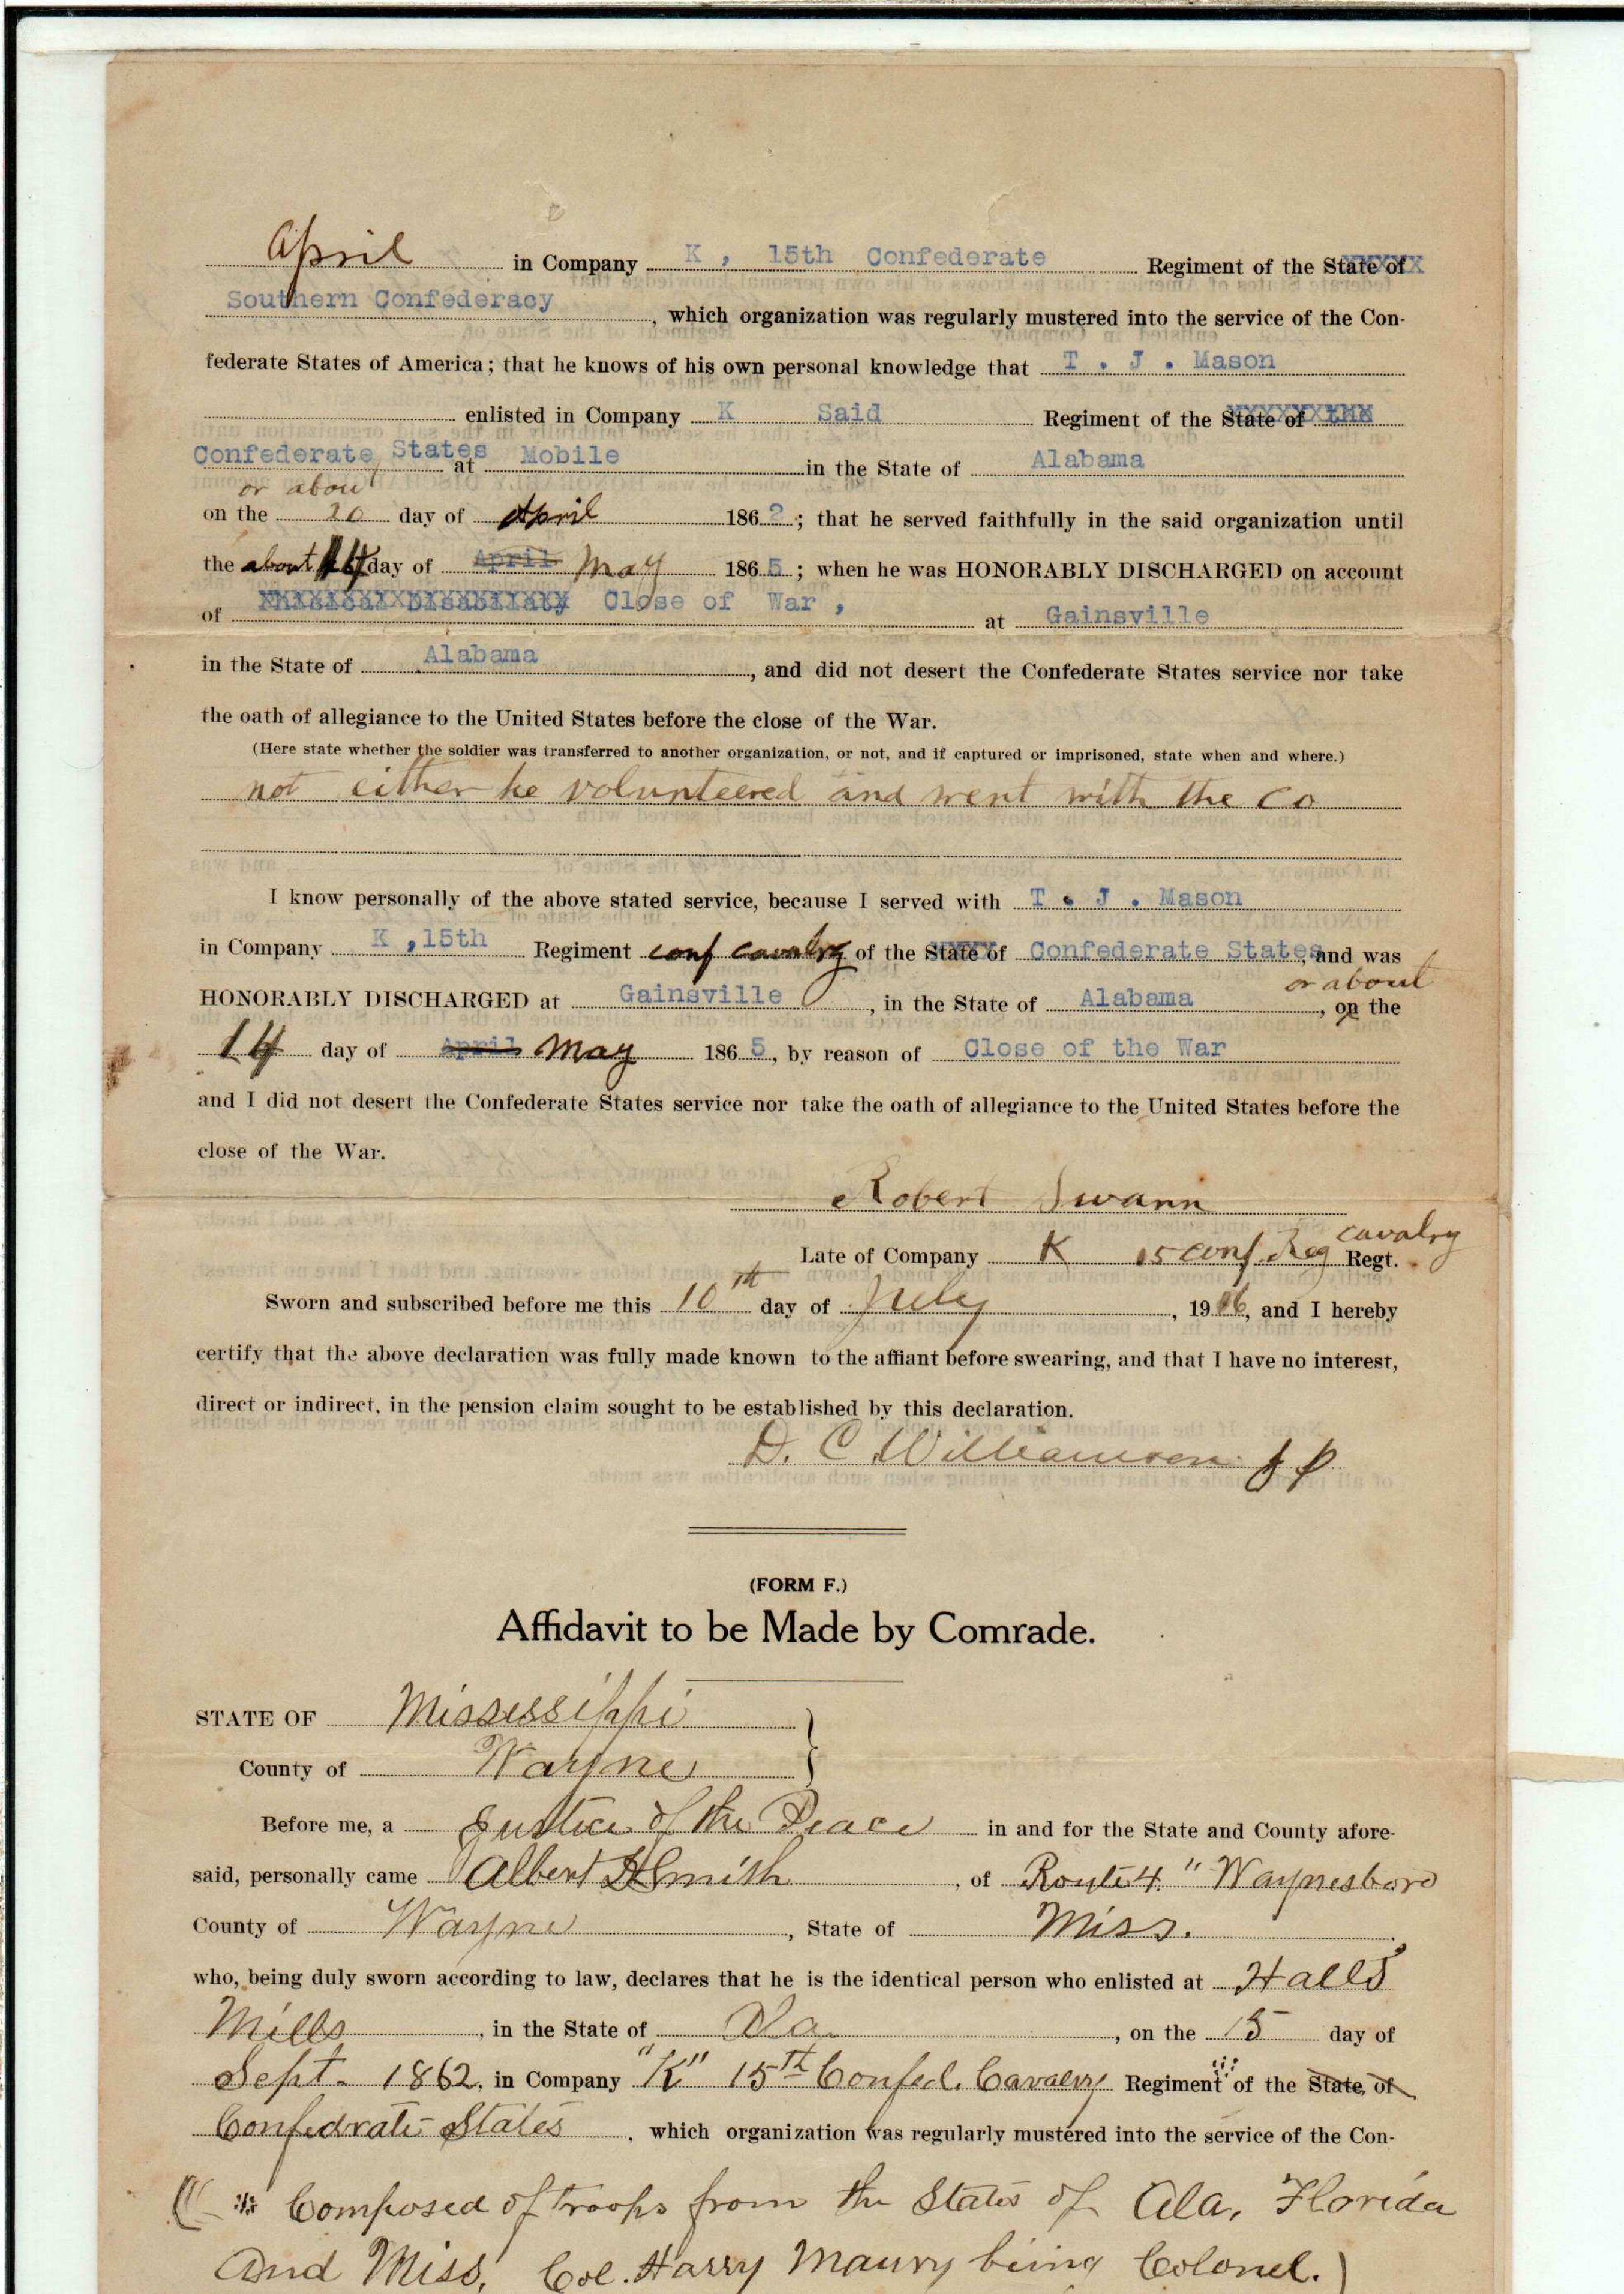 April in Company K, 15th Confederate Regiment of the State of
Southern Confederacy, which organization was regularly mustered into the service of the Con-
federate States of America; that he knows of his own personal knowledge that T. J. Mason
enlisted in Company K Said Regiment of the State of
Confederate States at Mobile in the State of Alabama
or about
on the 20 day of April 1862; that he served faithfully in the said organization until
the about 14 day of April May 1865; when he was HONORABLY DISCHARGED on account
of Close of War, at Gainsville
in the State of Alabama, and did not desert the Confederate States service nor take
the oath of allegiance to the United States before the close of the War.
(Here state whether the soldier was transferred to another organization, or not, and if captured or imprisoned, state when and where.)
not either he volunteered and went with the Co
I know personally of the above stated service, because I served with T. J. Mason
in Company K, 15th Regiment conf cavalry of the State of Confederate States, and was
or about
HONORABLY DISCHARGED at Gainsville, in the State of Alabama, on the
14 day of April May 1865, by reason of Close of the War
and I did not desert the Confederate States service nor take the oath of allegiance to the United States before the
close of the War.
Robert Swann
cavalry
Late of Company K 15 conf. Reg Regt.
Sworn and subscribed before me this 10th day of July, 1916, and I hereby
certify that the above declaration was fully made known to the affiant before swearing, and that I have no interest,
direct or indirect, in the pension claim sought to be established by this declaration.
D. C Williamson J P
(FORM F.)
Affidavit to be Made by Comrade.
STATE OF Missessippi
County of Wayne
Before me, a Justice of the Peace in and for the State and County afore-
said, personally came Albert H Smith, of Route 4 " Waynesboro
County of Wayne, State of Miss.
who, being duly sworn according to law, declares that he is the identical person who enlisted at Halls
Mills, in the State of Ala., on the 15 day of
Sept. 1862, in Company "K" 15th Confed. Cavalry Regiment of the State, of
Confedrate States, which organization was regularly mustered into the service of the Con-
(Composed of troops from the States of Ala, Florida
and Miss, Col. Harry Maury being Colonel.)